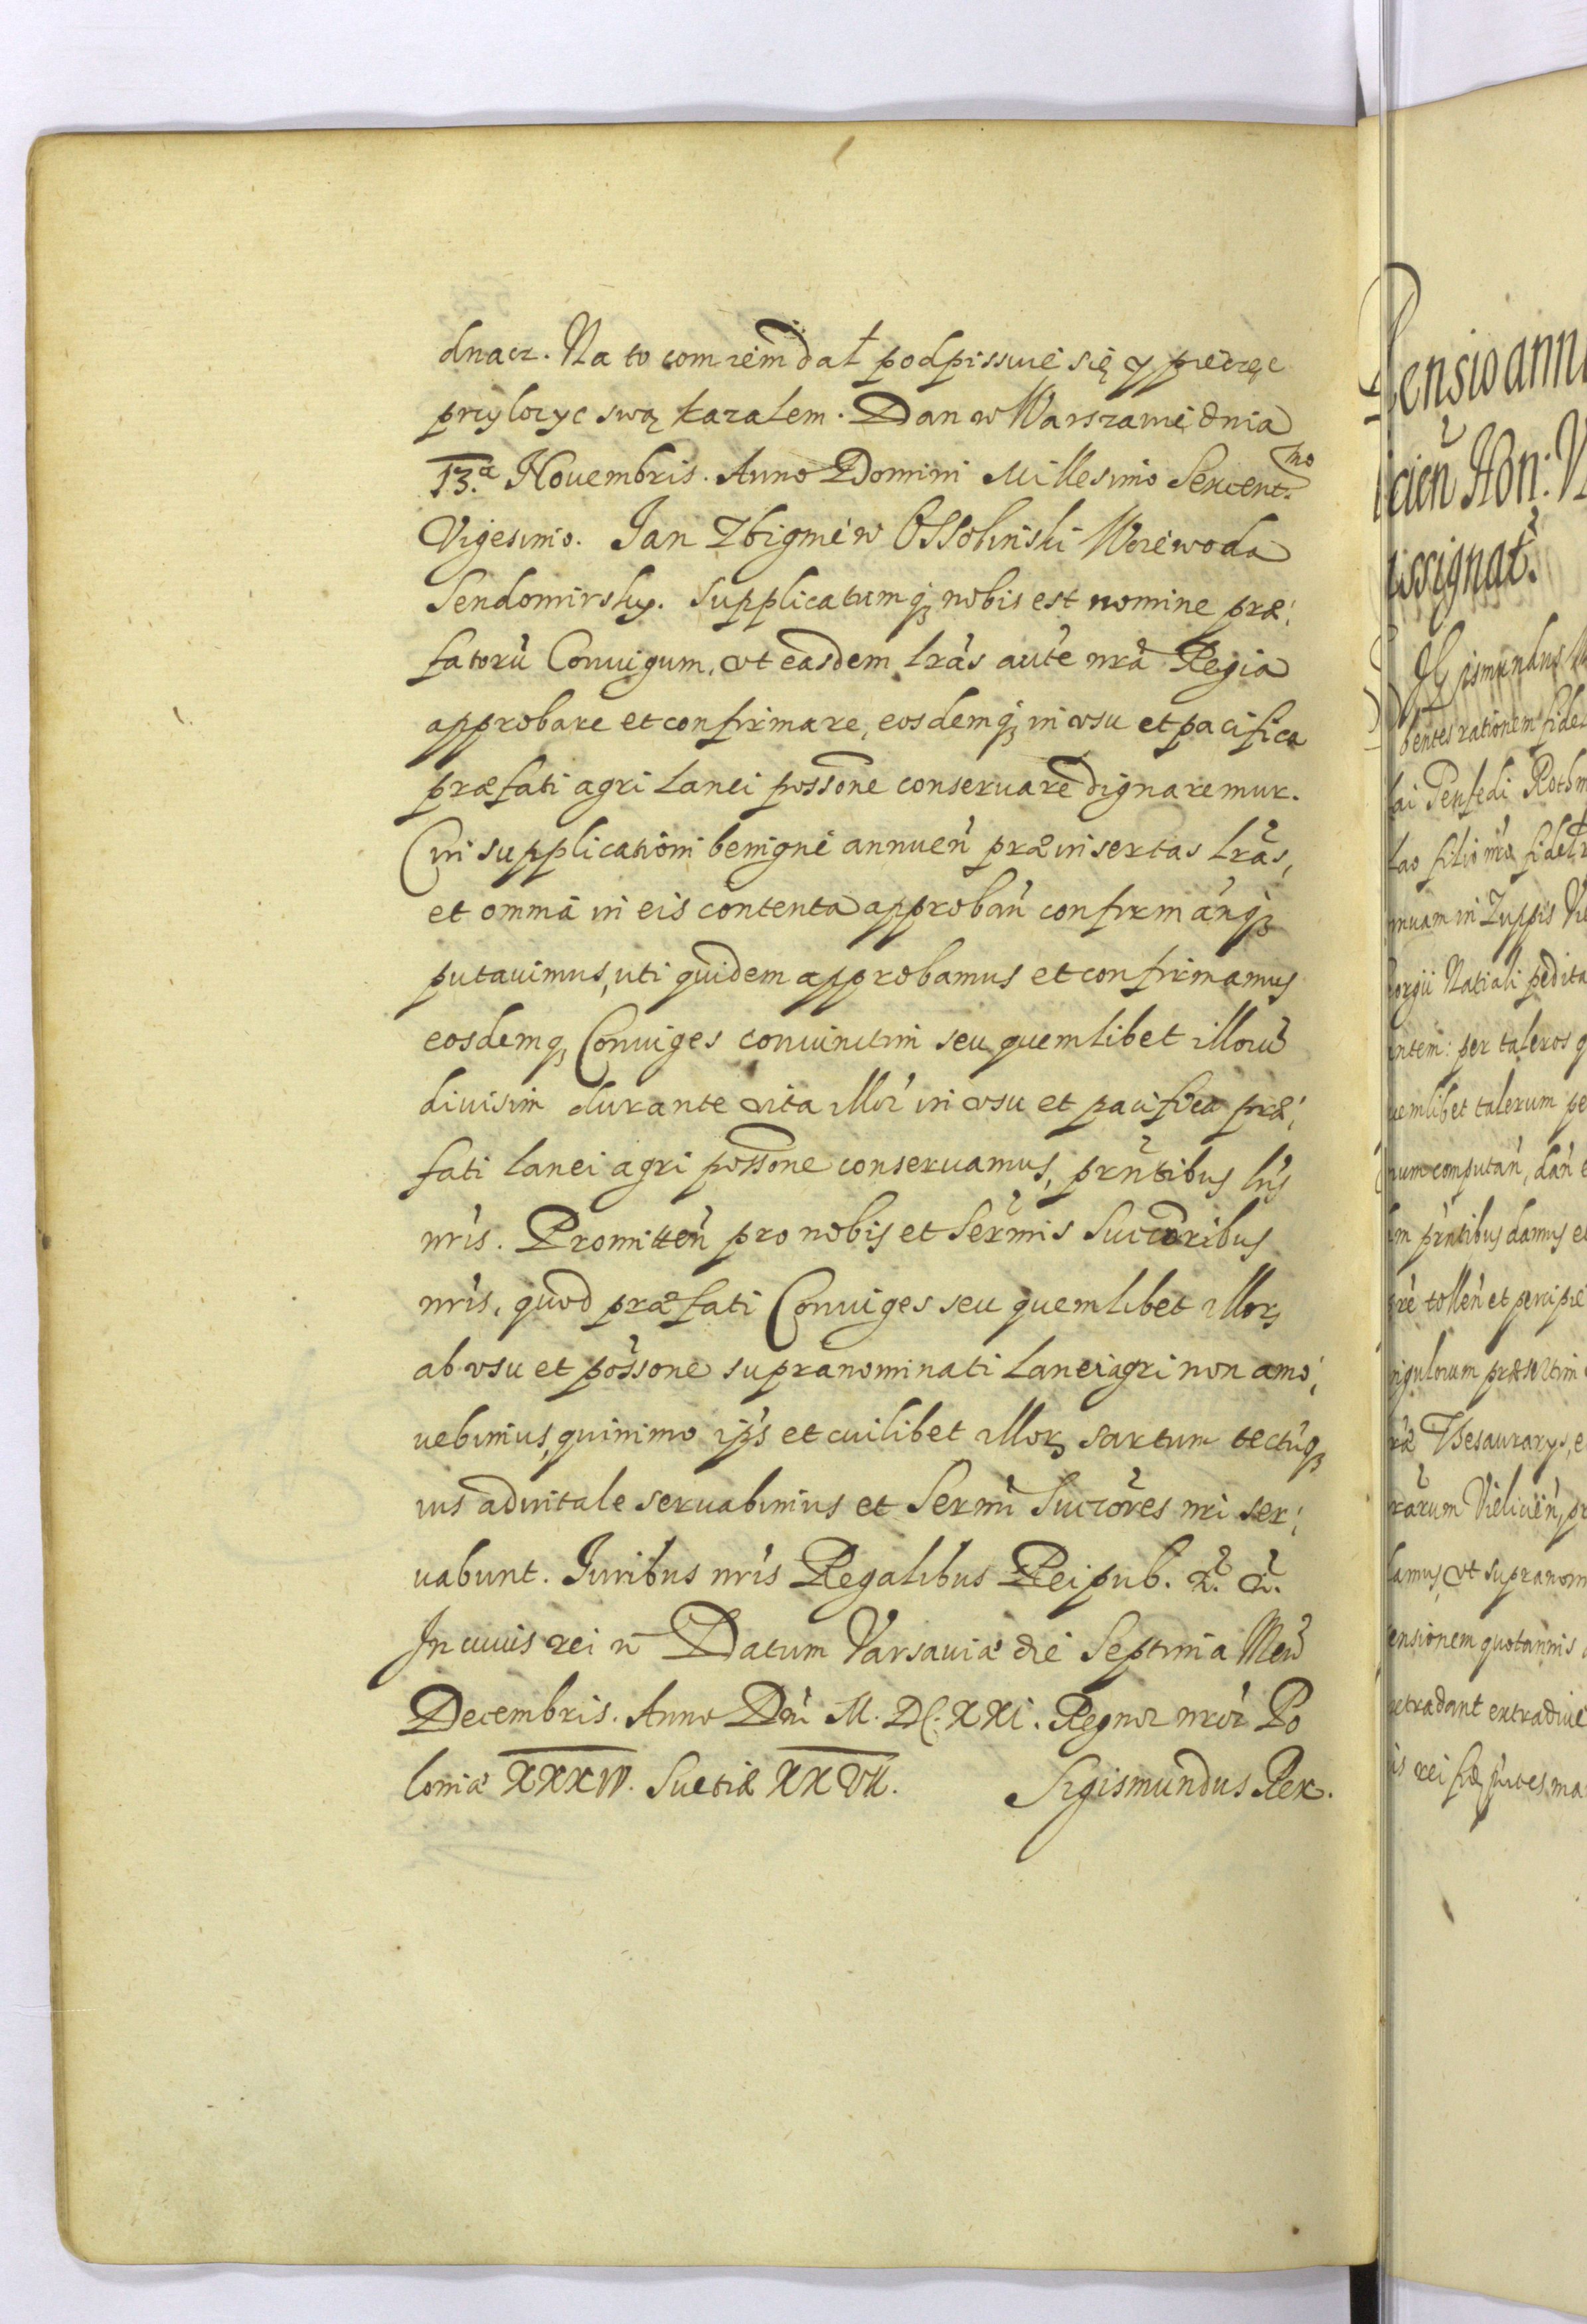 dnacz. Na to com iem dał podpissuie się y pieczęc
przylozyc swą kazalem. Dan w Warszawie dnia
13.a Nouembris. Anno Domini Millesimo Sexcent.mo
Vigesimo. Jan Zbigniew Ossolinski Woiewoda
Sendomirsky. Supplicatumq; nobis est nomine præ:
fatorū Coniugum, vt easdem lrãs aũte nrã Regia
approbare et confirmare, eosdemq; in vsu et pacifica
præfati agri Lanei possone conseruare dignaremur.
Cui supplicationi benigne annueñ præinsertas lrãs,
et omnia in eis contenta approbañ confirmañq;
putauimus, uti quidem approbamus et confirmamus
eosdemq; Coniuges coniunctim seu quemlibet illorū
diuisim durante vita illor in vsu et pacifica præ:
fati lanei agri possone conseruamus, prñtibus lris
nris. Promitteñ pro nobis et Sermis Succoribus
nris, quod præfati Coniuges seu quemlibet illor
ab vsu et possone supranominati Lanei agri non amo:
uebimus, quinimo ipis et cuilibet illor sartum tectūq;
ius aduitale seruabimus et Sermi Succores nri ser:
uabunt. Juribus nris Regalibus Reipub. & &.
In cuius rei ñ Datum Varsauiæ die Septima Meñ
Decembris. Anno Dñi M. DC. XXI. Regnor nror Po
loniæ XXXIV. Suetiæ XXVII. Sigismundus Rex.
ensio annu
cień Hon: V
issignat.
gismundus
bentes rationem fide
lai Penfedi Rothm
lao filio nro fidel
nnuam in Zuppis Vie
orgii Natiali pedita
ntem: per taleros q
uemlibet talerum pe
num computañ, dañ e
m prñtibus damus et
re tolleñ et percipie
ngulorum præsertim
ræ Thesaurarys, e
rarum Vielicieñ, pr
lamus, vt supranom
ensionem quotannis
et tradant extradiue
is rei fid prñtes ma